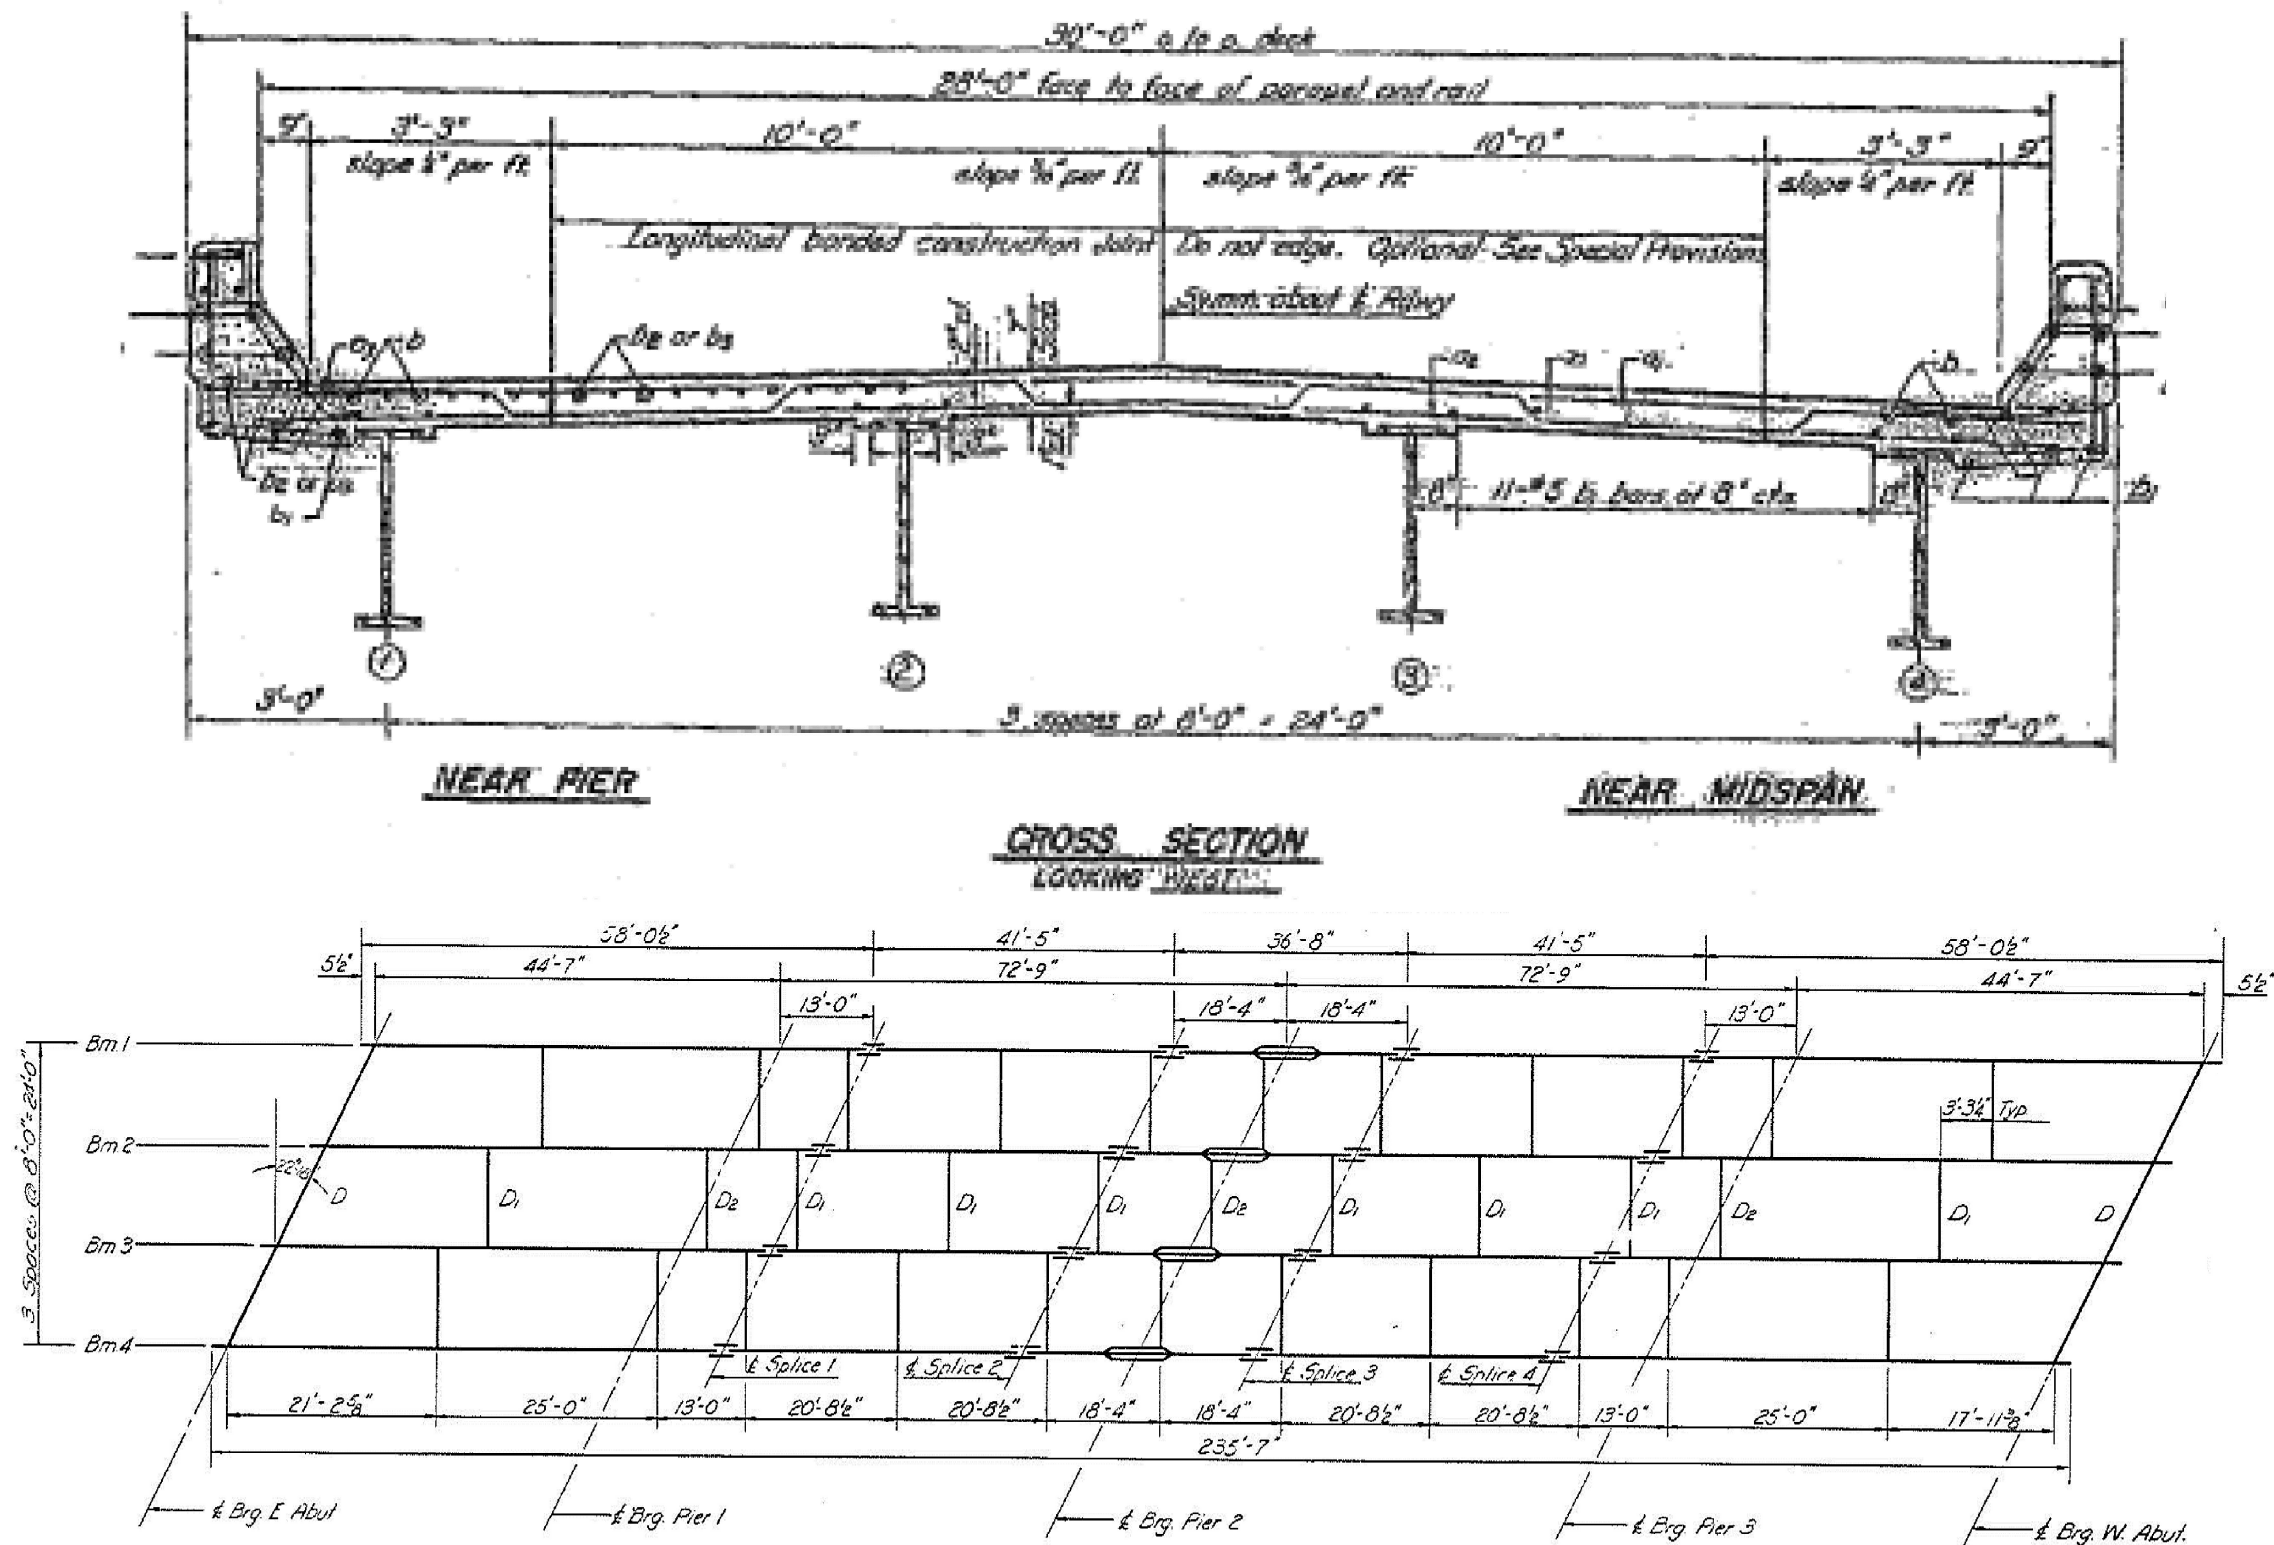 30'-0" o. to o. deck
28'-0" face to face of parapet and rail
9" 3'-3" 10'-0" 10'-0" 3'-3" 9"
slope ¼" per ft. slope 3/16" per ft. slope 3/16" per ft. slope ¼" per ft.
Longitudinal bonded construction joint Do not edge. Optional-See Special Provisions
Symm. about ℄ Rdwy
a₁ b b₂ or b₃ a₂ a a₁ b
b₂ or b₃
b₁
8" 11-#5 b₁ bars at 8" cts. 8" b₁
1 2 3 4
3'-0" 3 spaces at 8'-0" = 24'-0" 3'-0"
NEAR PIER NEAR MIDSPAN
CROSS SECTION
LOOKING WEST
58'-0½" 41'-5" 36'-8" 41'-5" 58'-0½"
5½" 44'-7" 72'-9" 72'-9" 44'-7" 5½"
13'-0" 18'-4" 18'-4" 13'-0"
Bm.1
3'-3¼" Typ.
Bm.2
D D₁ D₂ D₁ D₁ D₁ D₂ D₁ D₁ D₁ D₂ D₁ D
Bm.3
3 Spaces @ 8'-0"=24'-0"
Bm.4
℄ Splice 1 ℄ Splice 2 ℄ Splice 3 ℄ Splice 4
21'-2⅝" 25'-0" 13'-0" 20'-8½" 20'-8½" 18'-4" 18'-4" 20'-8½" 20'-8½" 13'-0" 25'-0" 17'-11⅜"
235'-7"
℄ Brg. E. Abut. ℄ Brg. Pier 1 ℄ Brg. Pier 2 ℄ Brg. Pier 3 ℄ Brg. W. Abut.